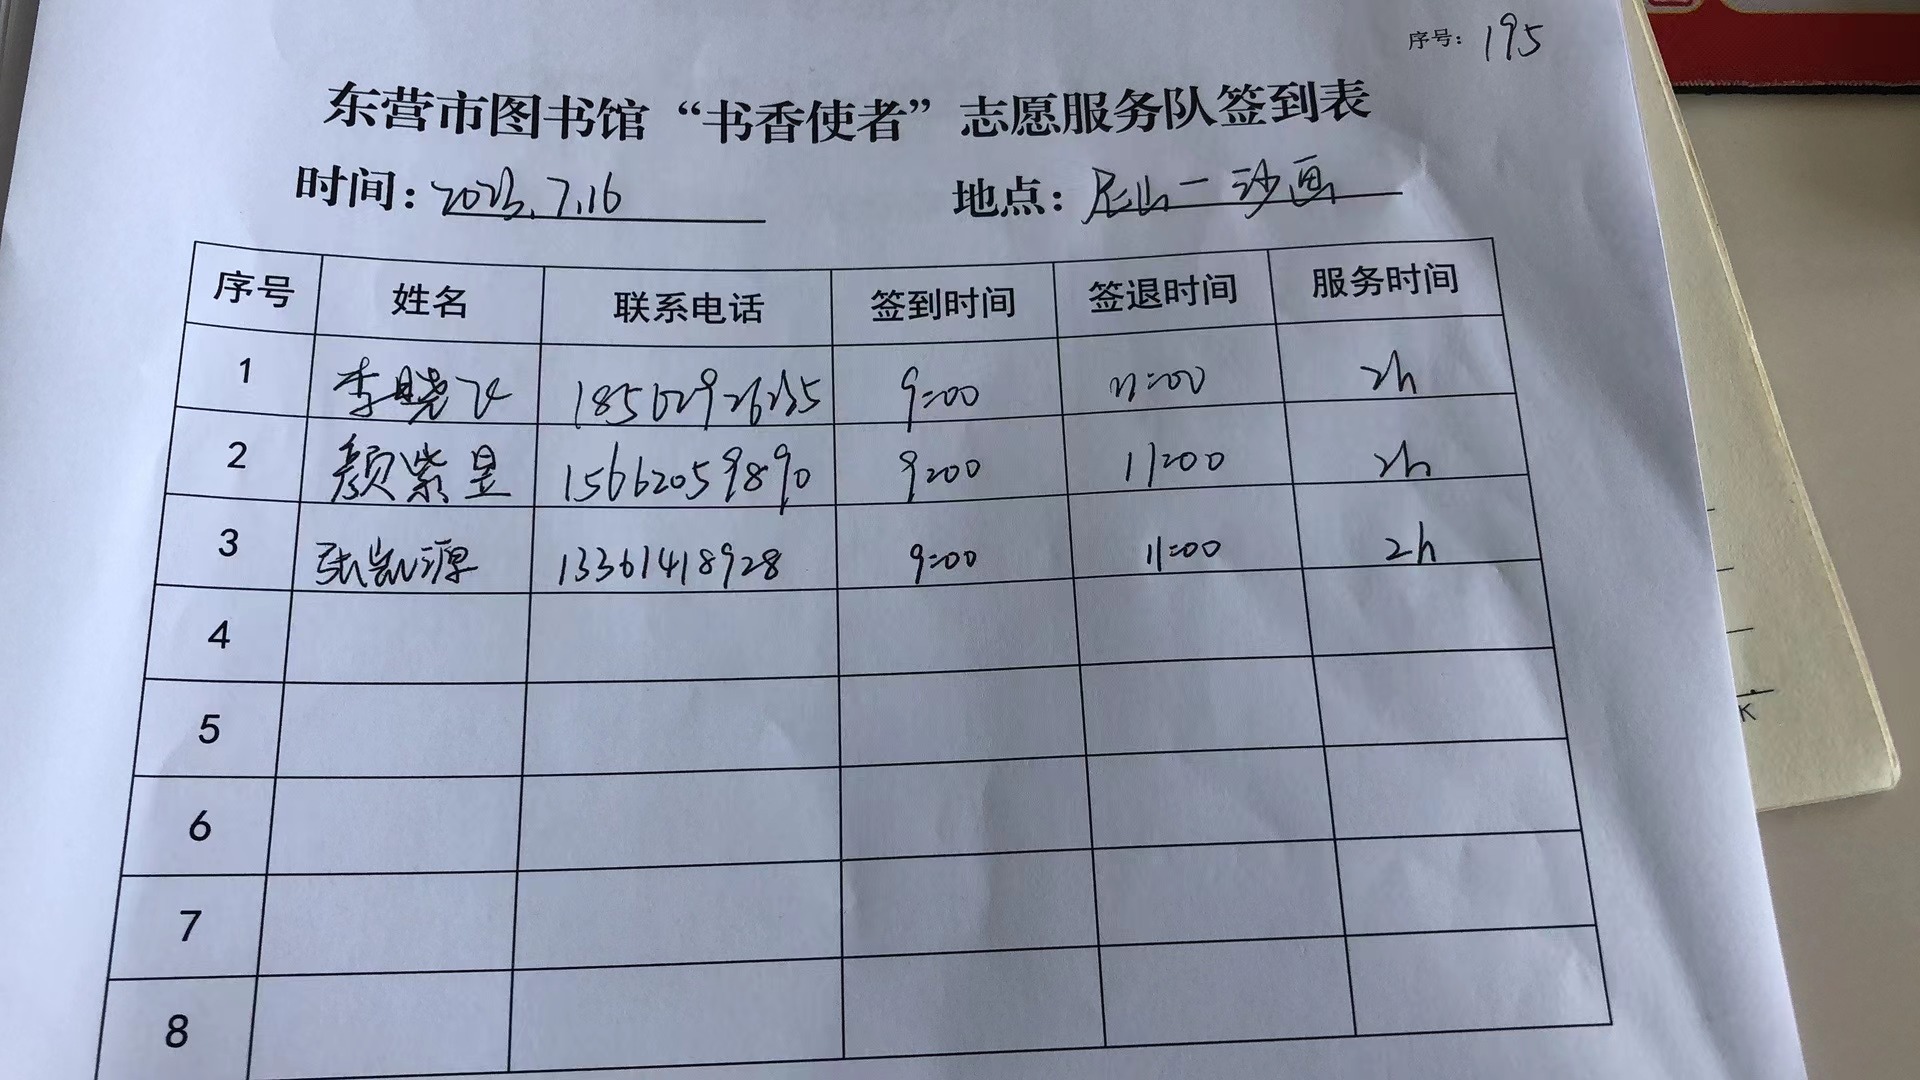 序号: 195
东营市图书馆“书香使者”志愿服务队签到表
时间: 2023.7.16 地点: 尼山一沙画
序号 姓名 联系电话 签到时间 签退时间 服务时间
1 李晓飞 18562926235 9:00 11:00 2h
2 颜紫昱 15662059890 9:00 11:00 2h
3 张凯源 13361418928 9:00 11:00 2h
4
5
6
7
8
K